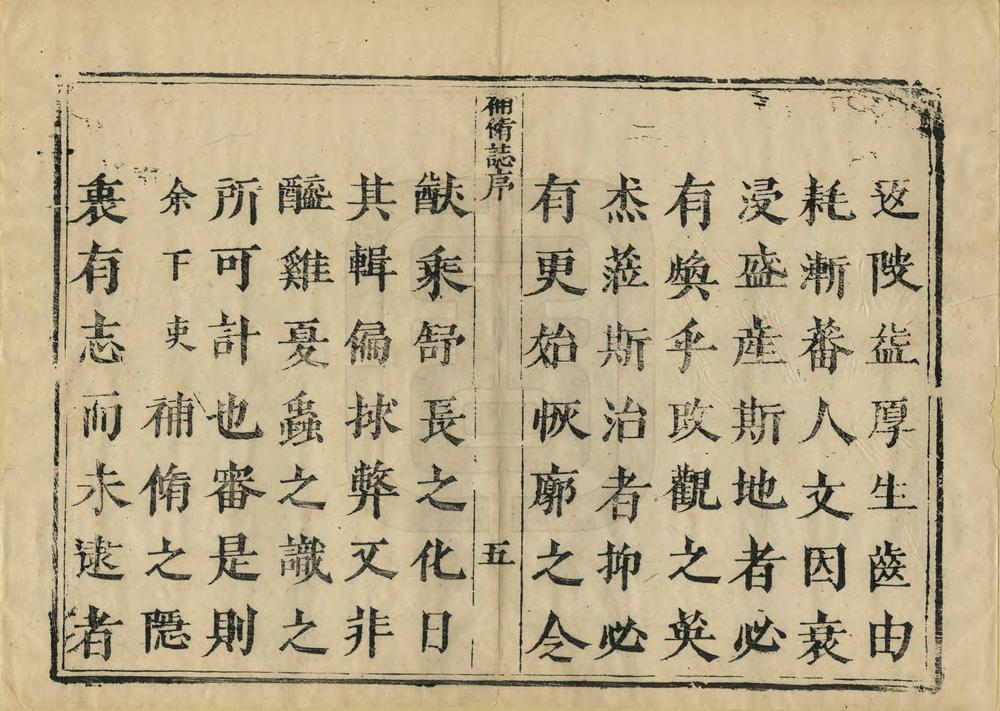 陂益厚生齒由
耗漸蕃人文因衰
浸盛産斯地者必
有煥乎改觀之英
杰蒞斯治者抑必
有更始恢廓之令
脩誌序 五
猷乘舒長之化日
其輯偏捄弊又非
醯雞夏蟲之識之
所可計也審是則
余下吏補脩之隱
衷有志而未逮者